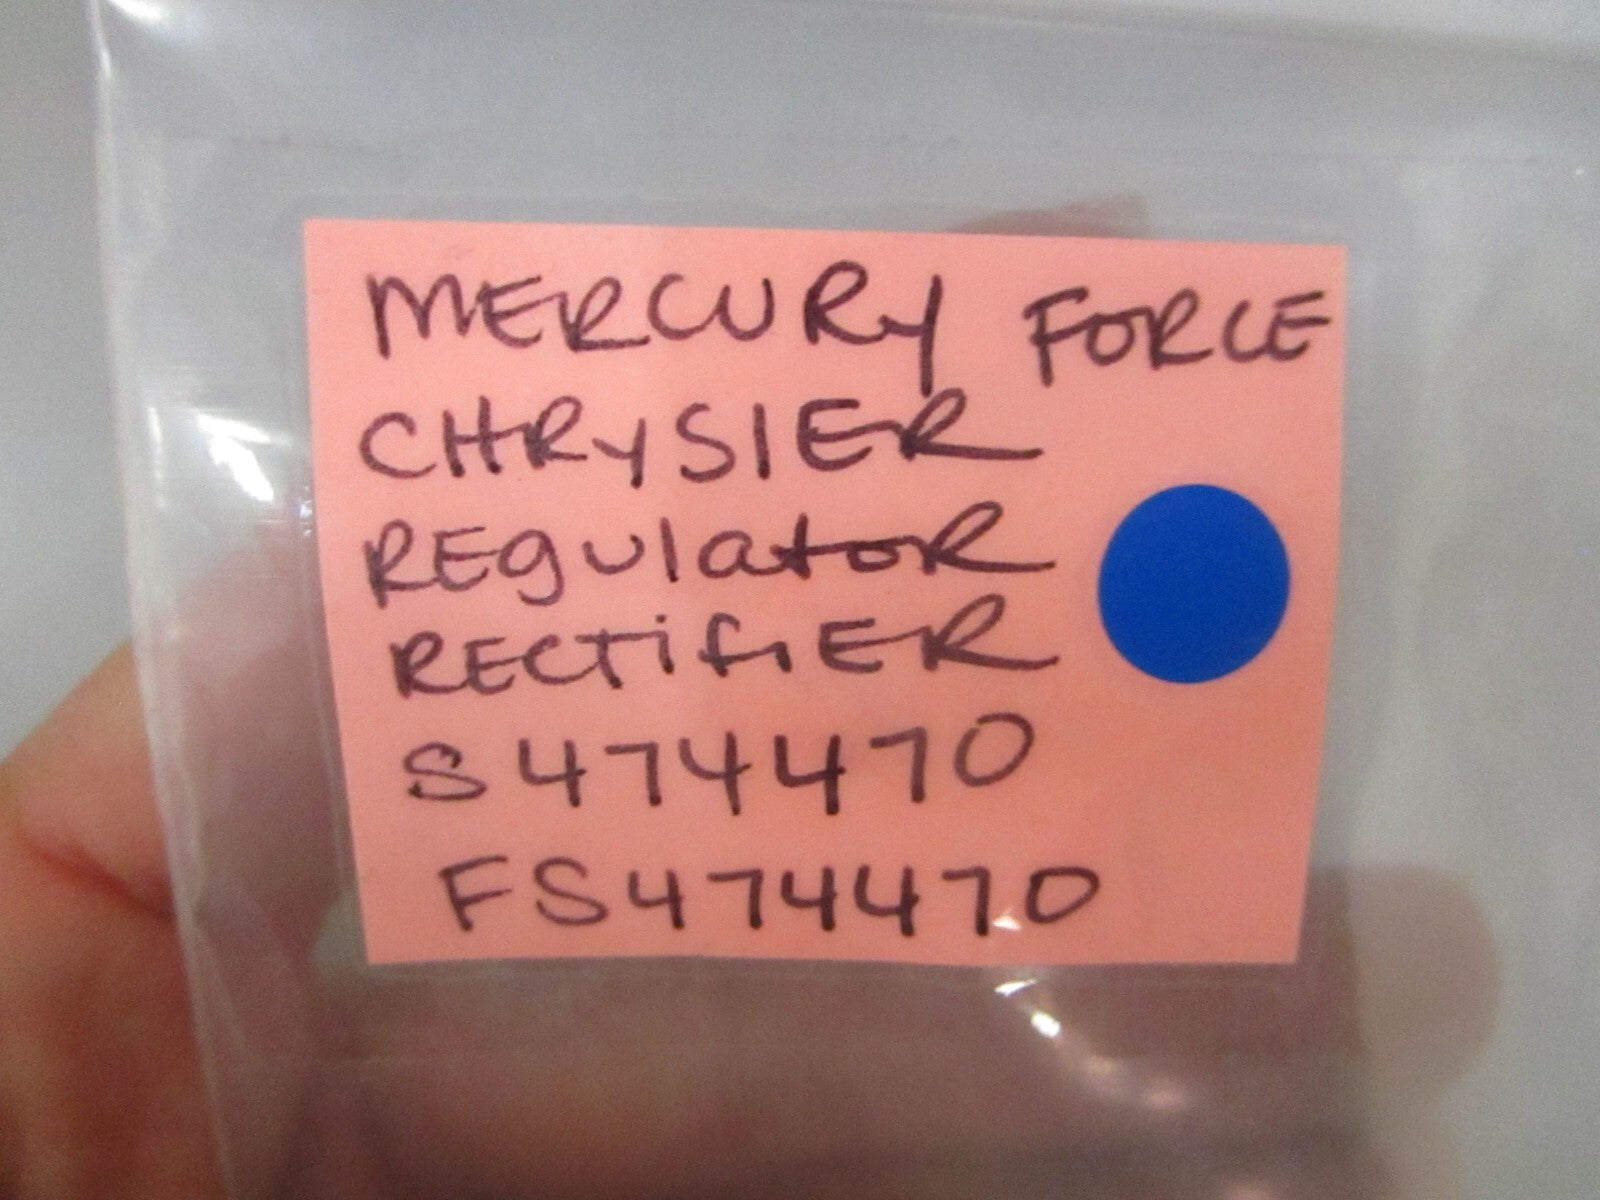 MERCURY FORCE
CHRYSlER
REgulatoR
RECTifiER
S474470
FS474470